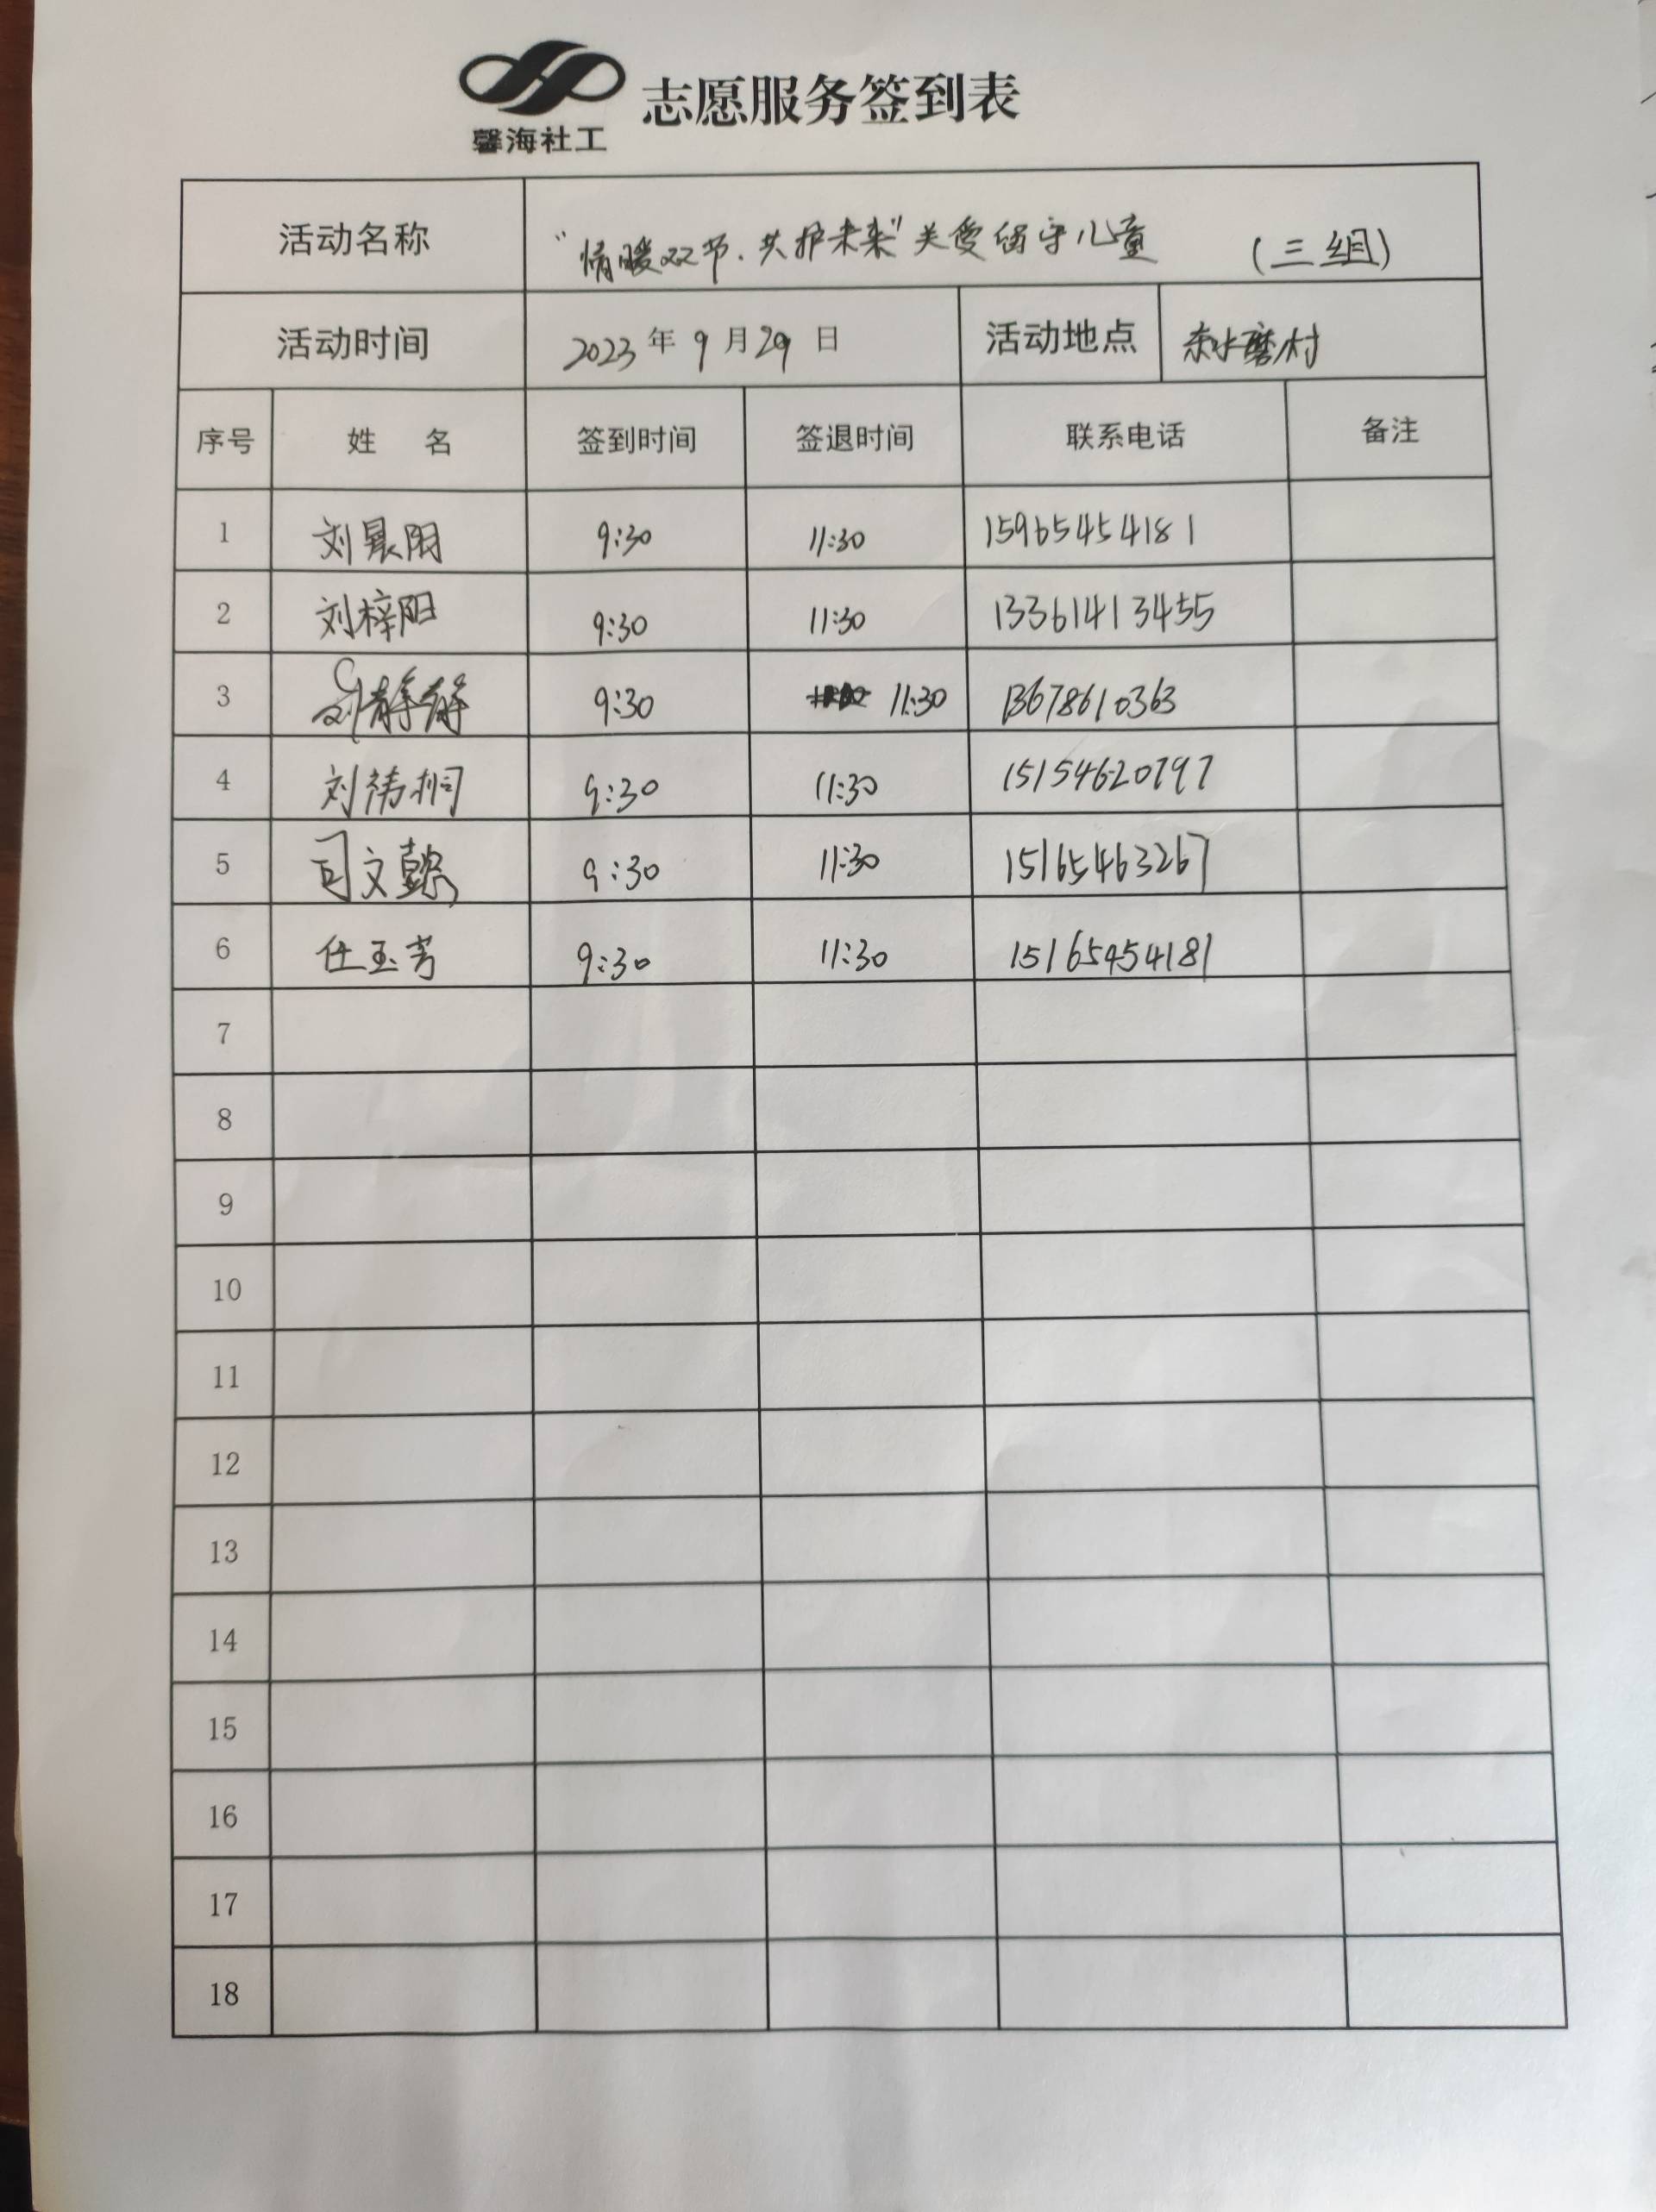 馨海社工
志愿服务签到表
活动名称 "情暖双节、共护未来"关爱留守儿童 (三组)
活动时间 2023年9月29日 活动地点 东水磨村
序号 姓 名 签到时间 签退时间 联系电话 备注
1 刘晨阳 9:30 11:30 15965454181
2 刘梓阳 9:30 11:30 13361413455
3 刘静静 9:30 11:30 13678610363
4 刘祎桐 9:30 11:30 15154620797
5 司文懿 9:30 11:30 15165463267
6 任玉芳 9:30 11:30 15165454181
7
8
9
10
11
12
13
14
15
16
17
18